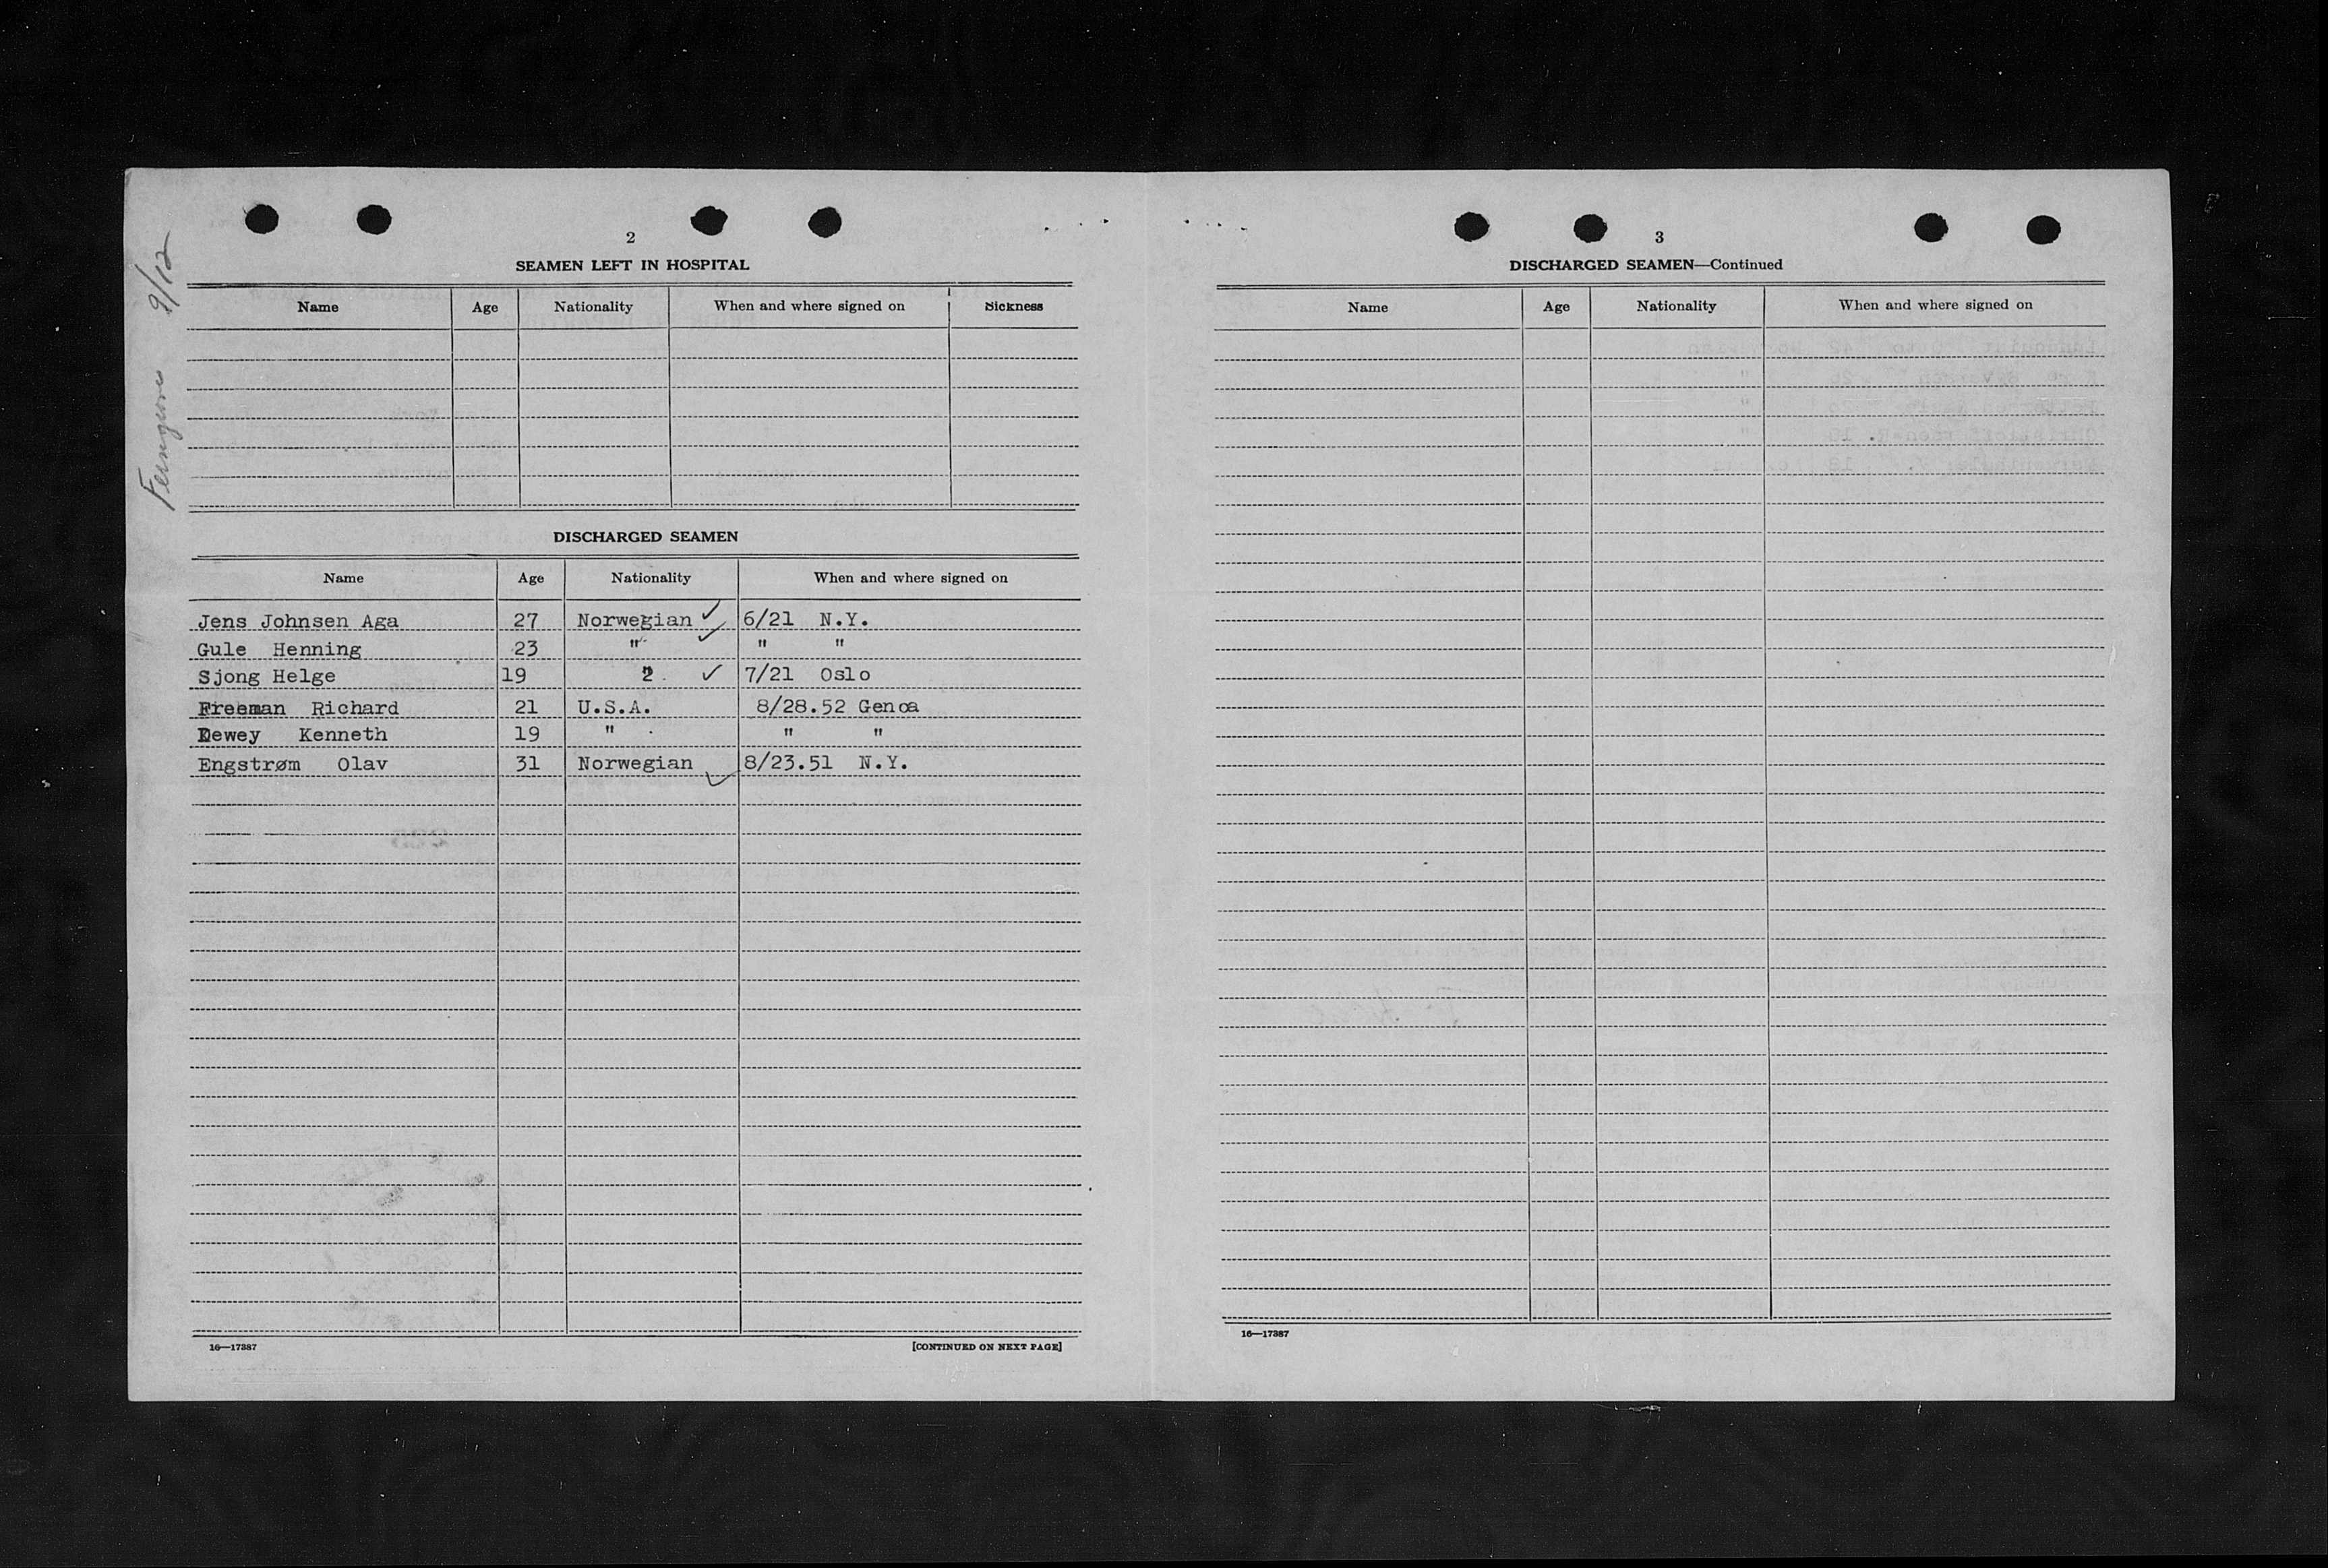 9/12
2
SEAMEN LEFT IN HOSPITAL
Name Age Nationality When and where signed on Sickness
DISCHARGED SEAMEN
Name Age Nationality When and where signed on
Jens Johnsen Aga 27 Norwegian ✓ 6/21 N.Y.
Gule Henning 23 " ✓ " "
Sjong Helge 19 2. ✓ 7/21 Oslo
Freeman Richard 21 U.S.A. 8/28.52 Genoa
Dewey Kenneth 19 " " "
Engstrøm Olav 31 Norwegian ✓ 8/23.51 N.Y.
16—17387 [CONTINUED ON NEXT PAGE]
3
DISCHARGED SEAMEN—Continued
Name Age Nationality When and where signed on
16—17387